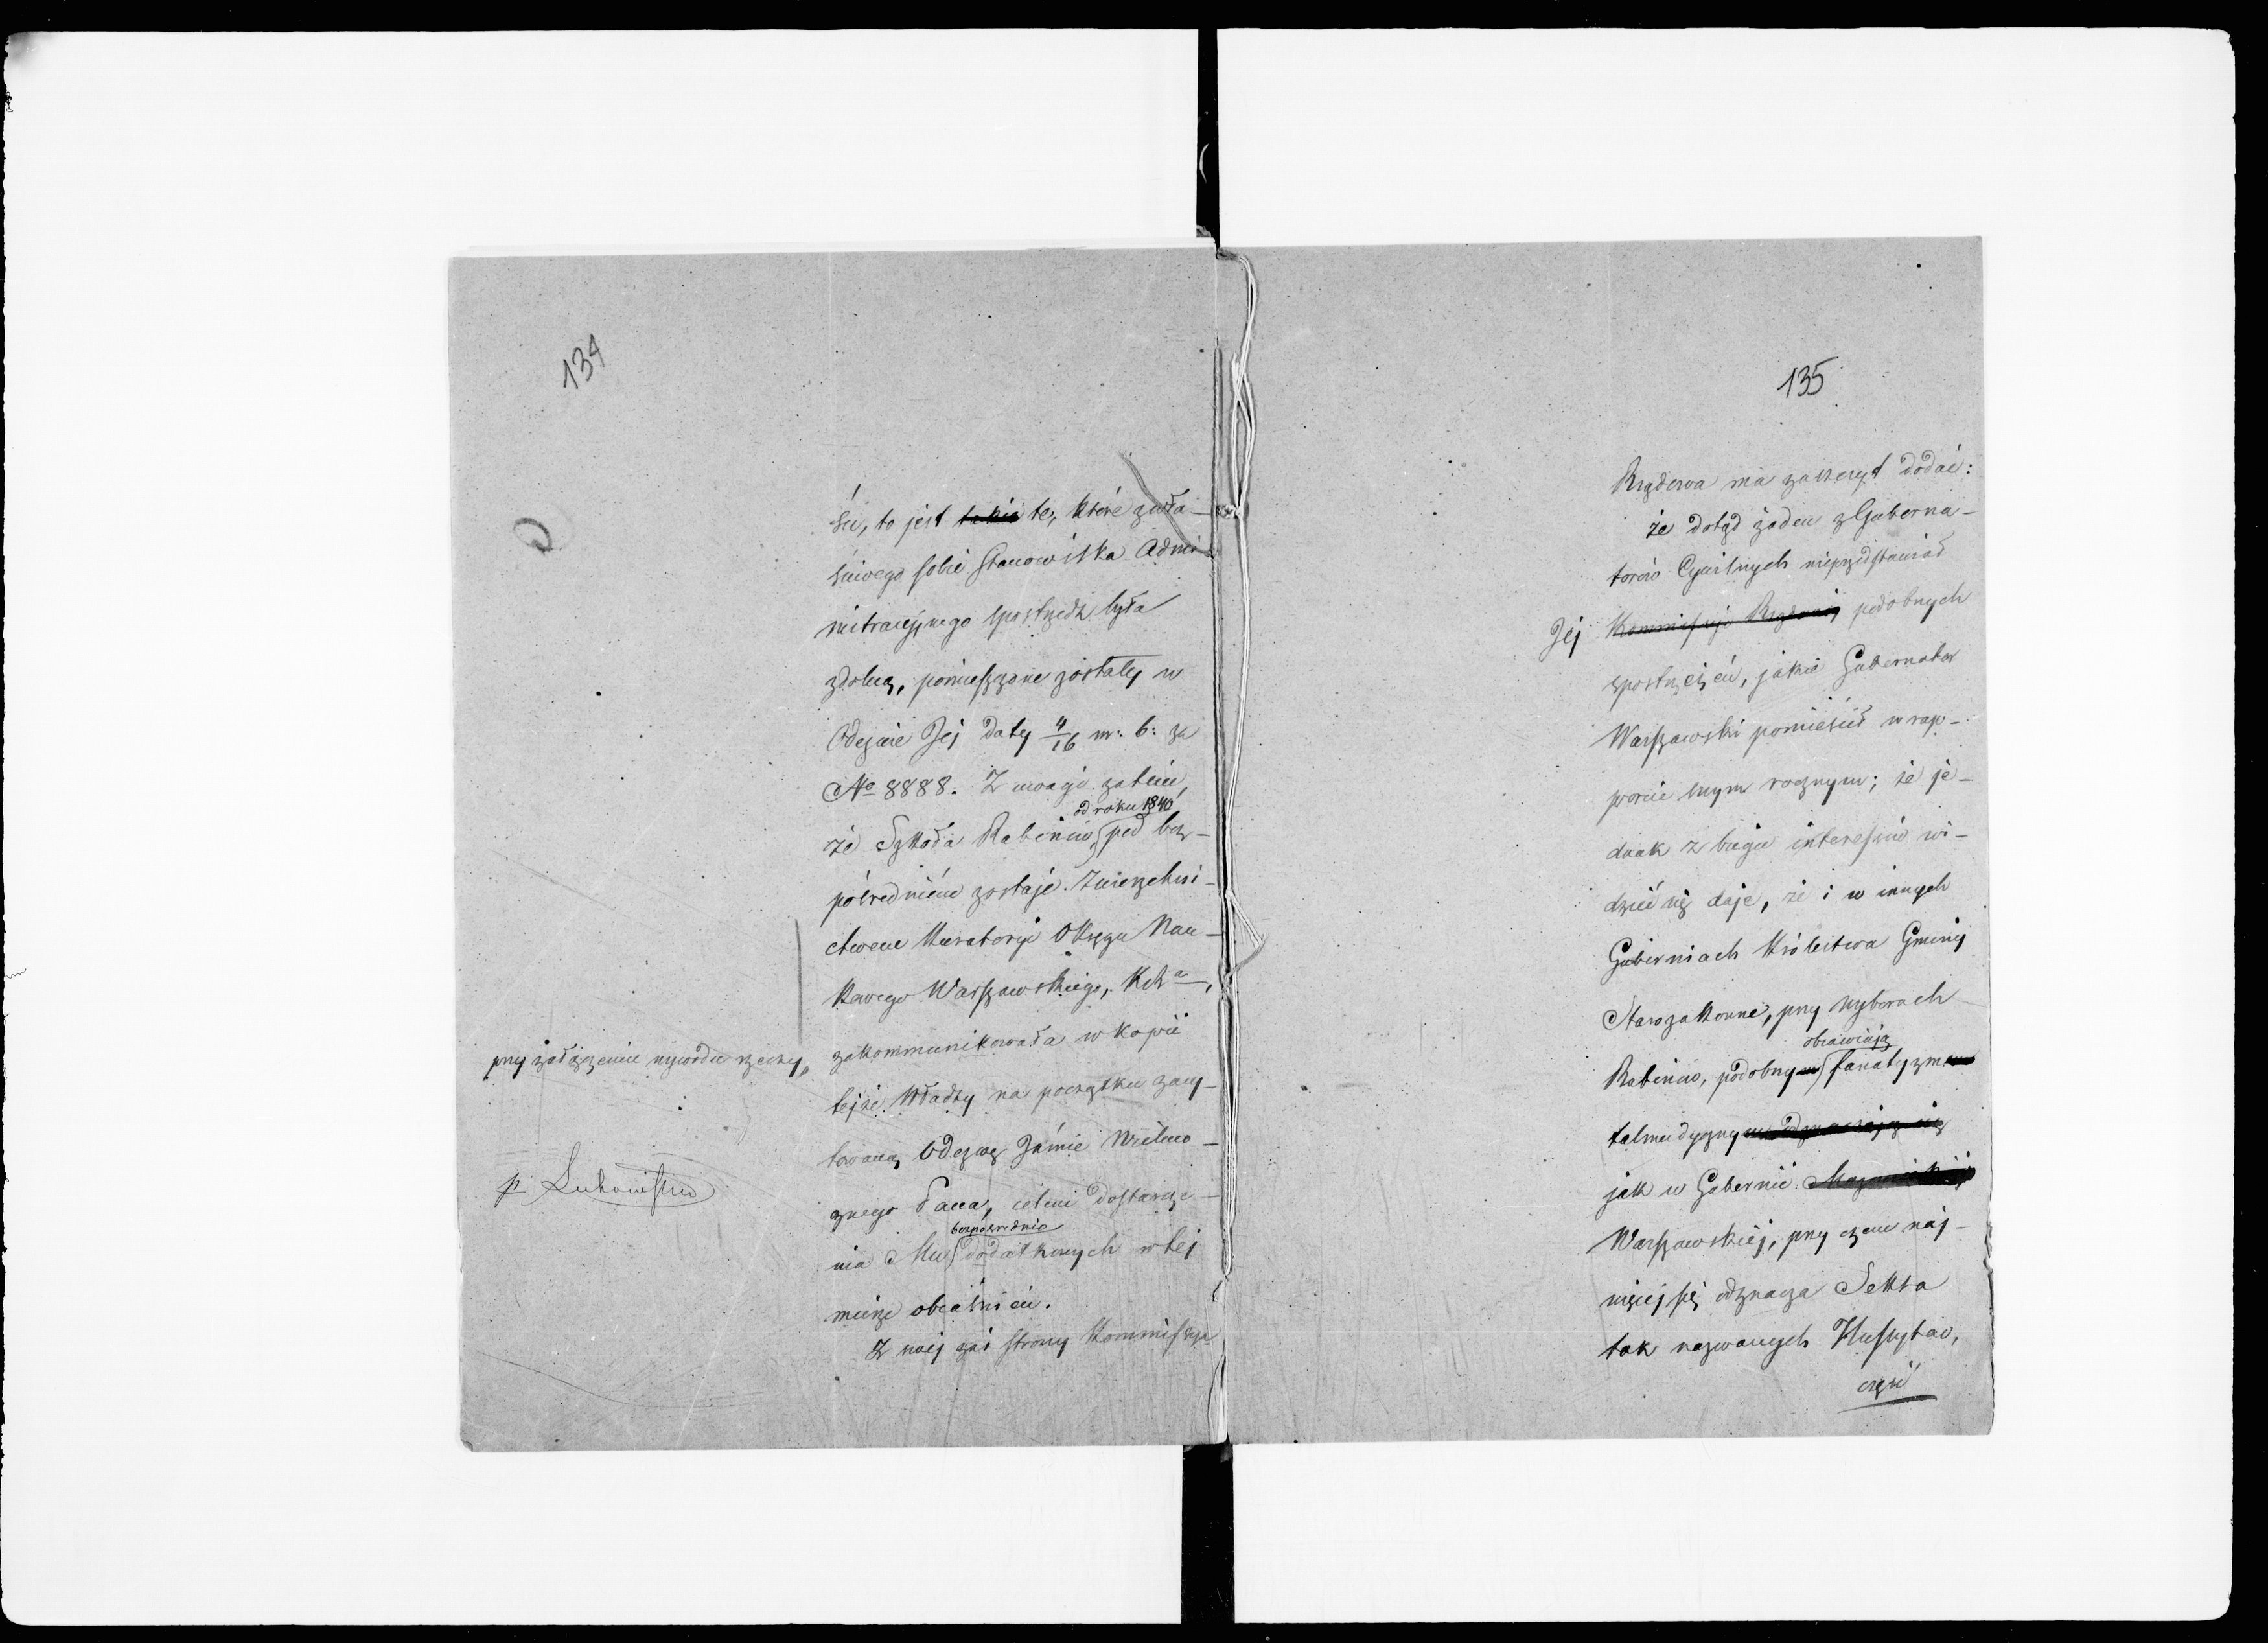 134
śii, to jest takie te, które z wła-
ściwego sobie Stanowiska Admi-
nistracyjnego spostrzedz była
zdolną, pomieszczone zostały w
Odezwie Jej daty 4/16 m: b: za
No 8888. Z uwagi zatem,
od roku 1840
że Szkoła Rabinów pod bez-
pośredniém zostaje Zwierzchni-
ctwem Kuratoryi Okręgu Nau-
kowego Warszawskiego, KRa,
zakommunikowała w kopii
przy załączeniu wywodu rzeczy,
tejże Władzy na początku zacy-
towaną Odezwę Jaśnie Wielmo-
żnego Pana, celem dostarcze-
bezpośrednio
nia Mu dodatkowych w tej
mierze objaśnień.
Z swej zaś strony Kommissya
135
Rządowa ma zaszczyt dodać:
że dotąd żaden z Guberna-
torów Cywilnych nieprzedstawiał
Jej Kommissyi Rządowej podobnych
spostrzeżeń, jakie Gubernator
Warszawski pomieścił w rap-
porcie swym rocznym; że je-
dnak z biegu interesów wi-
dzieć się daje, że i w innych
Guberniach Królestwa Gminy
Starozakonne, przy wyborach
objawiają
Rabinów, podobnym fanatyzmem
talmudycznym odznaczają się
jak w Gubernii Mazowieckiéj
Warszawskiéj, przy czem naj-
więcéj się odznacza Sekta
tak nazwanych Hussytów,
część